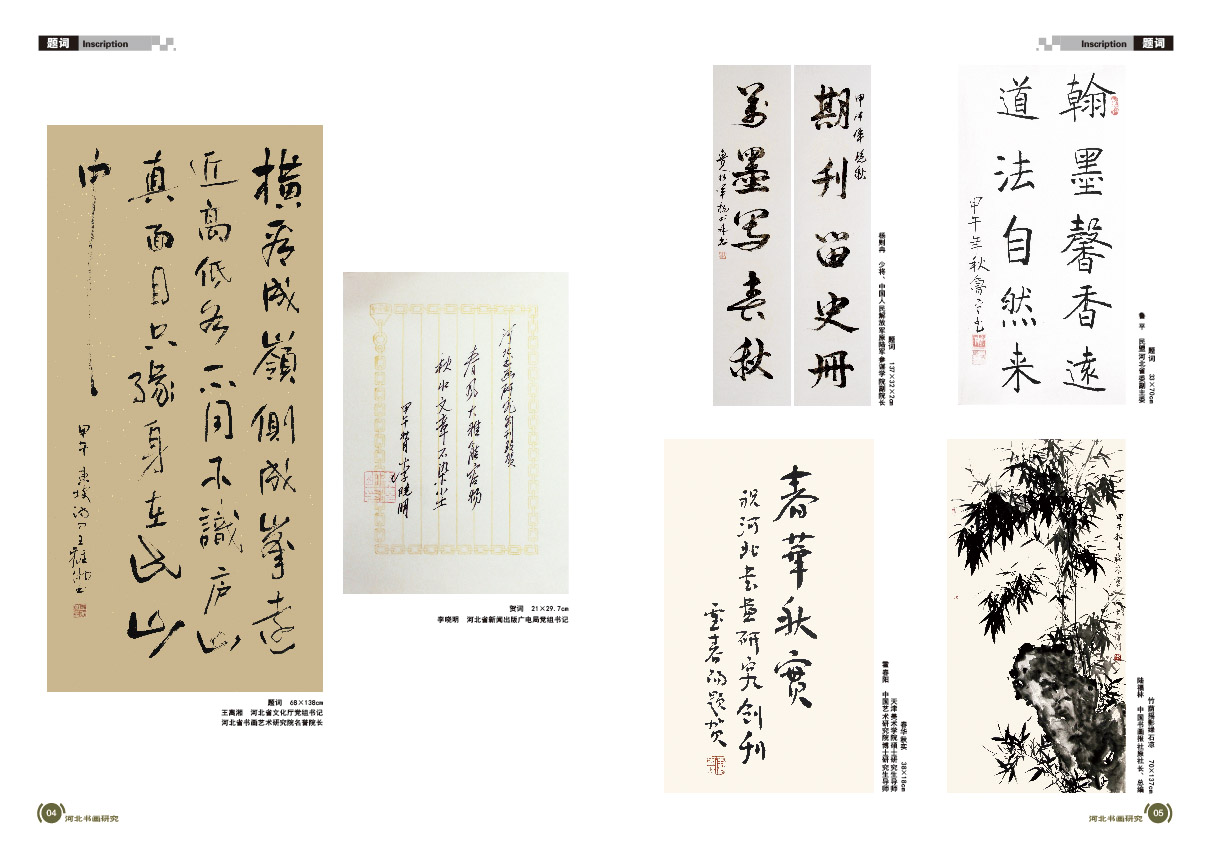 题词 Inscription
橫看成嶺側成峯遠
近高低各不同不識庐山
真面目只緣身在此山
中
甲午 东坡
题词 68×138cm
王离湘 河北省文化厅党组书记
河北省书画艺术研究院名誉院长
河北书画研究创刊致贺
春风大雅能容物
秋水文章不染尘
甲午 李晓明
贺词 21×29.7cm
李晓明 河北省新闻出版广电局党组书记
04 河北书画研究
Inscription 题词
期刊留史册
翰墨写春秋
题词 137×32×2cm
杨则冉 少将、中国人民解放军原陆军参谋学院副院长
翰墨馨香遠
道法自然来
甲午年秋
题词 33×70cm
鲁平 民盟河北省委副主委
春華秋實
祝河北書畫研究创刊
霍春阳题贺
春华秋实 38×18cm
天津美术学院硕士研究生导师
霍春阳 中国艺术研究院博士研究生导师
竹荫摇影绿石凉 70×137cm
陆福林 中国书画报社原社长、总编
河北书画研究 05